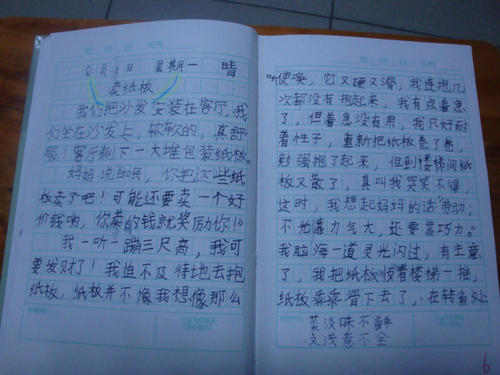 8月1日 星期一 晴
卖纸板
我们把沙发安装在客厅,我
们坐在沙发上,软软的,真舒
服!客厅剩下一大堆包装纸板。
妈妈说:"你把这些纸
板卖了吧!可能还要卖一个好
价钱哟,你卖的钱就奖励你!"
我一听一蹦三尺高,我可
要发财了!我迫不及待地去抱
纸板,纸板并不像我想像那么
听使唤,它又硬又滑,我连抱几
次都没有抱起来,我有点着急
了,但着急没有用,我只好耐
着性子,重新把纸板卷了卷,
勉强抱了起来,但到楼梯间纸
板又散了,真叫我哭笑不得,
这时,我想起妈妈的话"劳动,
不光靠力气大,还要靠巧力。"
我脑海一道灵光闪过,有主意
了,我把纸板顺着楼梯一推,
纸板乖乖滑下去了,在转角处
菜淡味不鲜
文浅意不全
6